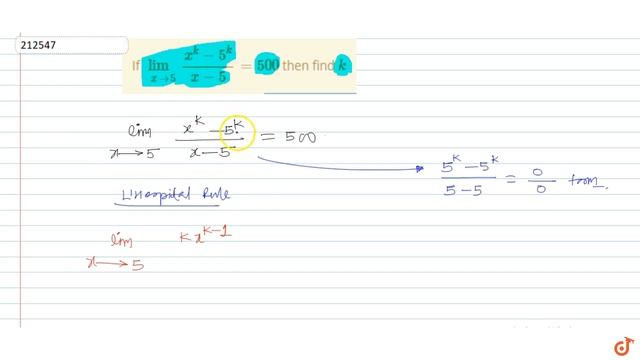 212547
If lim x→5 (x^k − 5^k)/(x − 5) = 500 then find k
lim x→5 (x^k − 5^k)/(x − 5) = 500
(5^k − 5^k)/(5 − 5) = 0/0 form.
L'Hospital Rule
lim x→5 k x^(k−1)
doubtnut